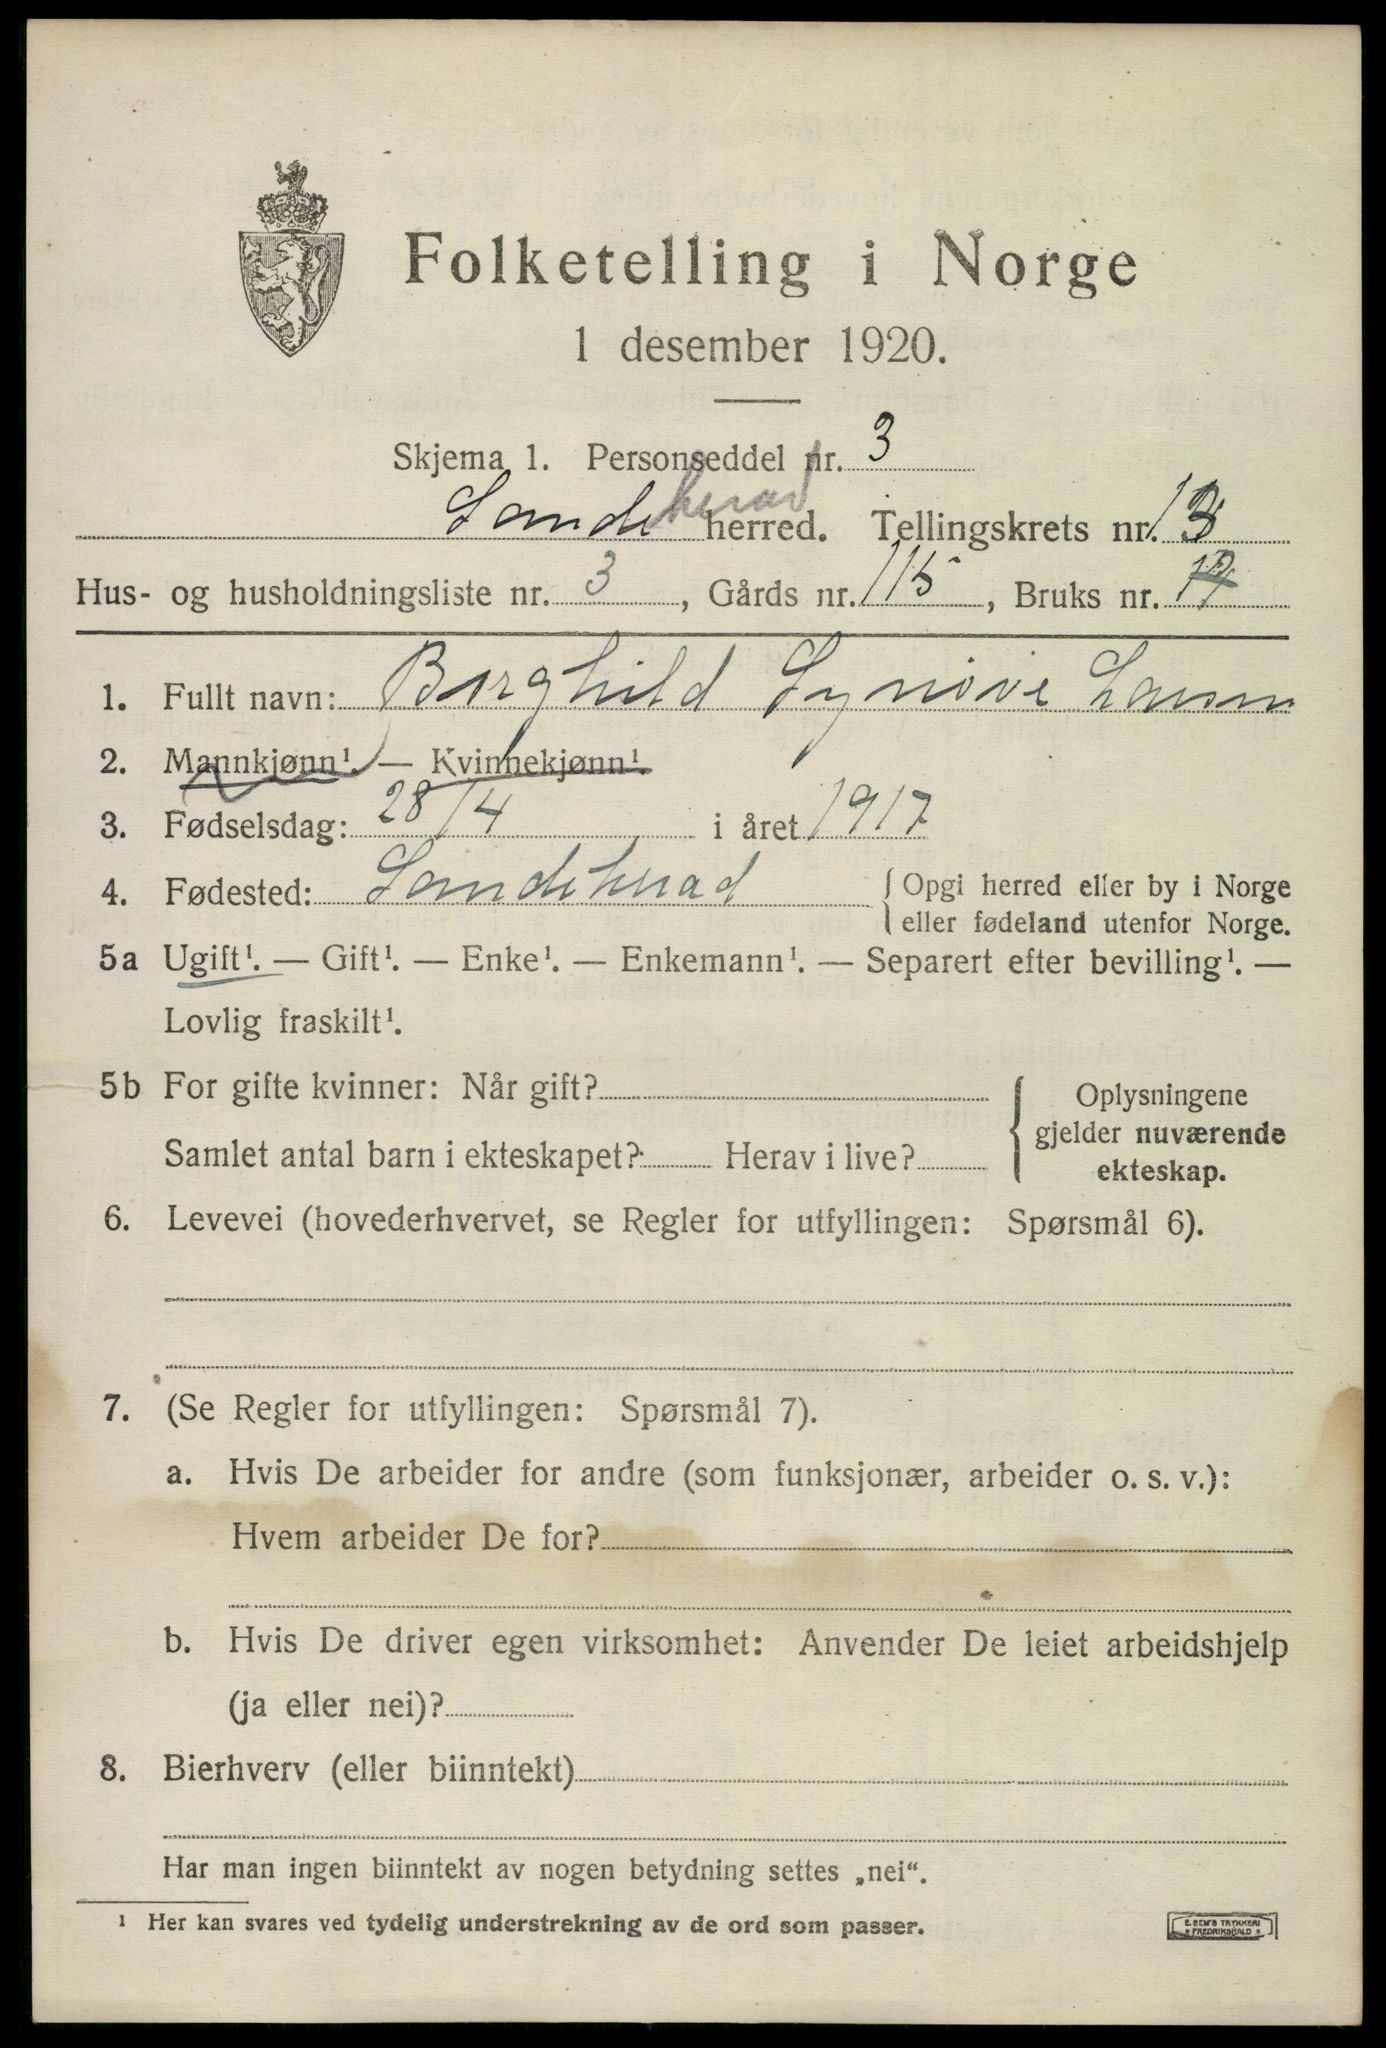 Folketelling i Norge
1 desember 1920.
Skjema 1. Personseddel nr. 3
Sandeherad herred. Tellingskrets nr. 13
Hus- og husholdningsliste nr. 3, Gårds nr. 115, Bruks nr.
1. Fullt navn: Borghild Synøve Larsen
2. Mannkjønn¹. — Kvinnekjønn¹.
3. Fødselsdag: 28/4 i året 1917
4. Fødested: Sandeherad { Opgi herred eller by i Norge
eller fødeland utenfor Norge.
5a Ugift¹. — Gift¹. — Enke¹. — Enkemann¹. — Separert efter bevilling¹. —
Lovlig fraskilt¹.
5b For gifte kvinner: Når gift?
Samlet antal barn i ekteskapet? Herav i live?
Oplysningene
gjelder nuværende
ekteskap.
6. Levevei (hovederhvervet, se Regler for utfyllingen: Spørsmål 6).
7. (Se Regler for utfyllingen: Spørsmål 7).
a. Hvis De arbeider for andre (som funksjonær, arbeider o. s. v.):
Hvem arbeider De for?
b. Hvis De driver egen virksomhet: Anvender De leiet arbeidshjelp
(ja eller nei)?
8. Bierhverv (eller biinntekt)
Har man ingen biinntekt av nogen betydning settes „nei“.
¹ Her kan svares ved tydelig understrekning av de ord som passer.
E. SEM'S TRYKKERI
* FREDRIKSHALD *